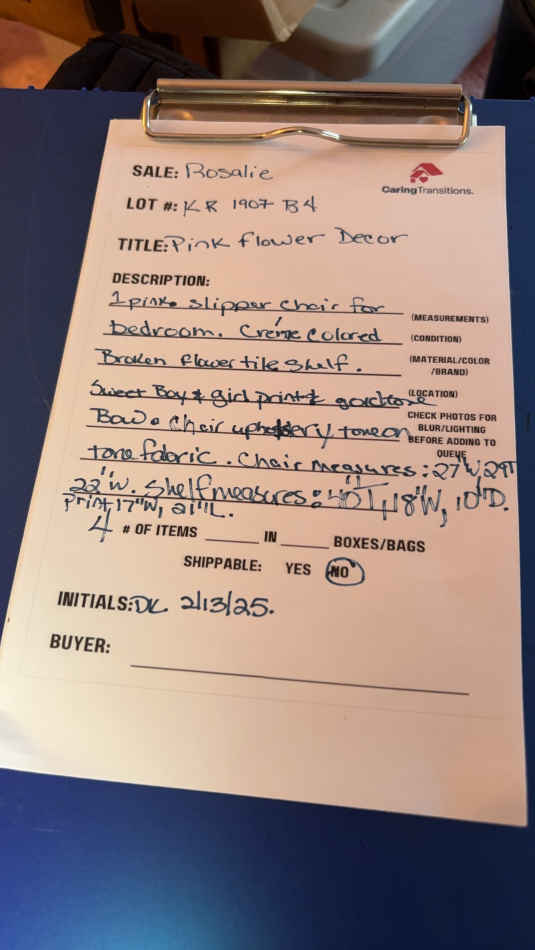 SALE: Rosalie
CaringTransitions.
LOT #: KR 1907 B4
TITLE: Pink flower Decor
DESCRIPTION:
1 pink slipper chair for
(MEASUREMENTS)
bedroom. Créme Colored
(CONDITION)
Broken flower tile shelf.
(MATERIAL/COLOR
/BRAND)
Sweet Boy & girl print &
(LOCATION)
Bow. Chair upholstery tone on
CHECK PHOTOS FOR
BLUR/LIGHTING
BEFORE ADDING TO
QUEUE
tone fabric. Chair measures: 27"W, 29T
22"W. Shelf measures: 40"T, 18"W, 10"D.
print 17"W, 21"L.
4 # OF ITEMS ______ IN ______ BOXES/BAGS
SHIPPABLE: YES NO
INITIALS: DK 2/13/25.
BUYER: